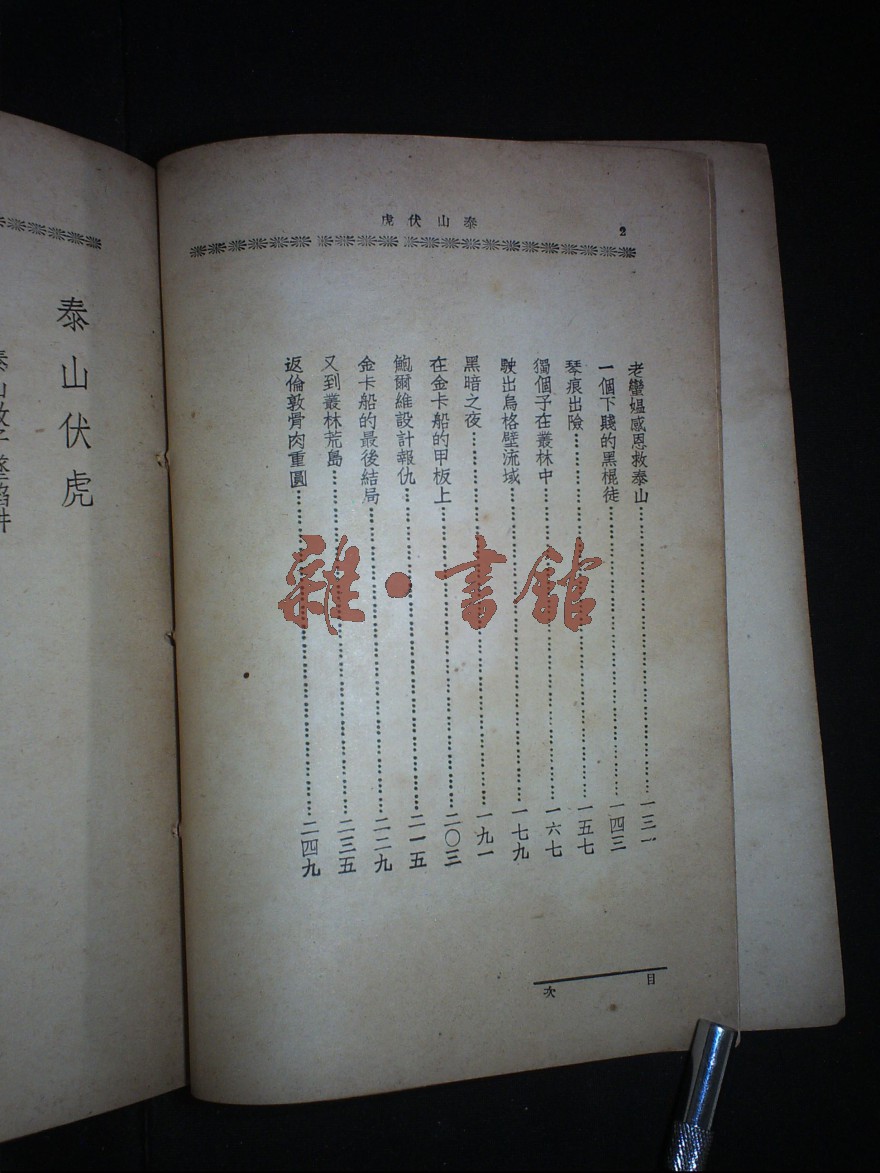 泰山伏虎
2
老蠻媪感恩救泰山 一三一
一個下賤的黑棍徒 一四三
琴痕出險 一五七
獨個子在叢林中 一六七
駛出烏格壁流域 一七九
黑暗之夜 一九一
在金卡船的甲板上 二〇三
鮑爾維設計報仇 二一五
金卡船的最後結局 二二九
又到叢林荒島 二三五
返倫敦骨肉重圓 二四九
目次
泰山伏虎
雜·書館